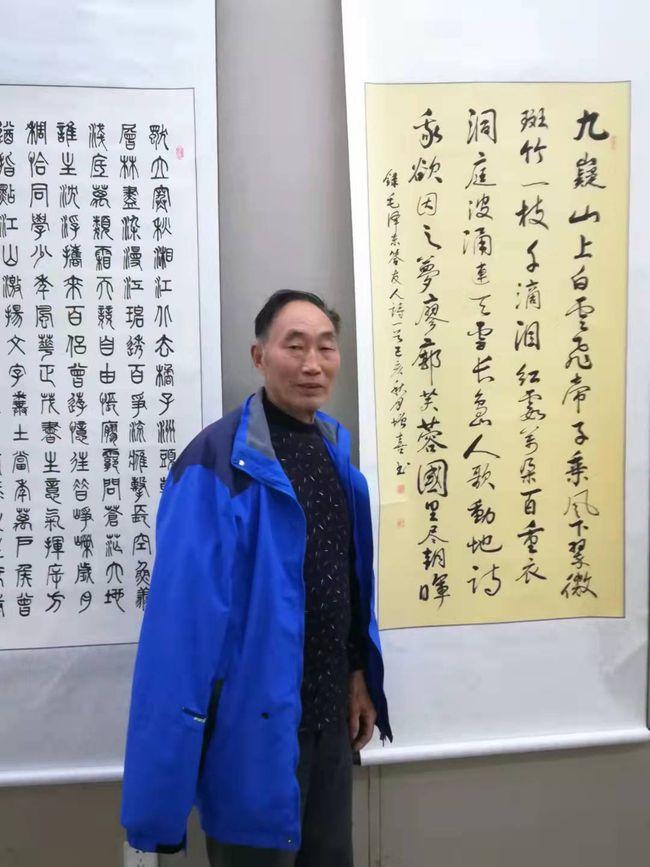 九嶷山上白雲飛帝子乘風下翠微
斑竹一枝千滴泪紅霞萬朵百重衣
洞庭波涌連天雪長島人歌動地詩
我欲因之夢廖廓芙蓉國里尽朝暉
錄毛泽东答友人詩一首己亥秋月增喜书
獨立寒秋湘江北去橘子洲頭
層林盡染漫江碧透百舸爭流鷹擊長空魚翔
淺底萬類霜天競自由悵寥廓問蒼茫大地
誰主沈浮攜來百侶曾遊憶往昔崢嶸歲月
稠恰同學少年風華正茂書生意氣揮斥方
遒指點江山激揚文字糞土當年萬戶侯曾